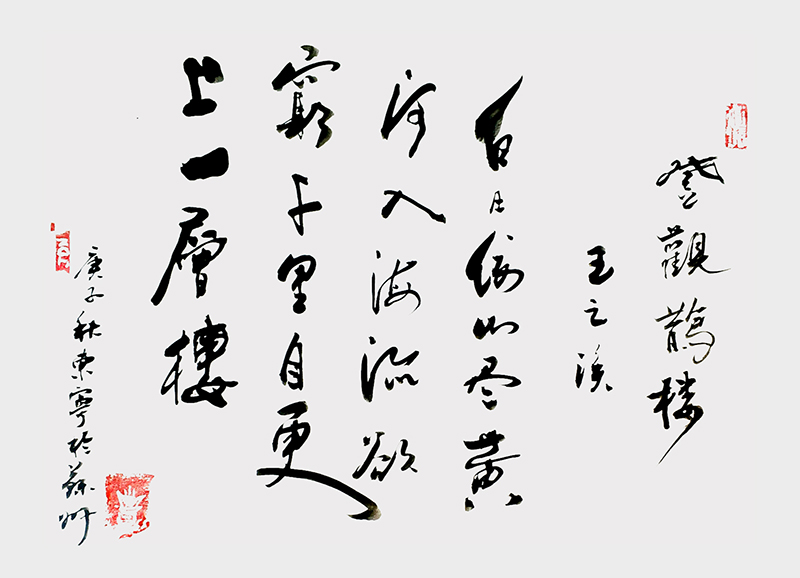 登觀鵲楼
王之渙
白日依山尽黄
河入海流欲
窮千里自更
上一層樓
庚子秋東寧於蘇州